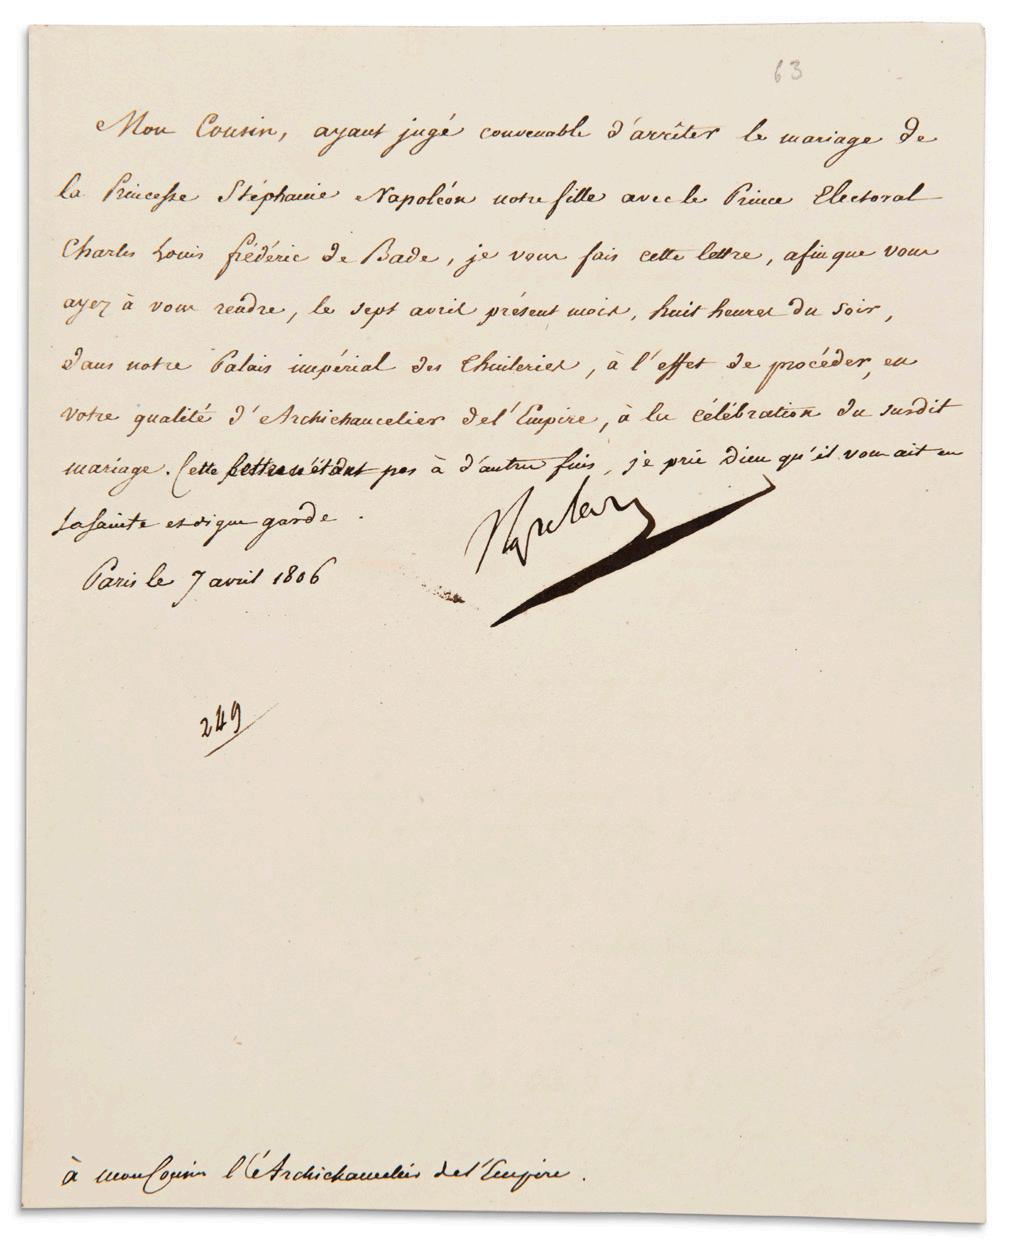 63
Mon Cousin, ayant jugé convenable d'arrêter le mariage de
la Princesse Stéphanie Napoléon notre fille avec le Prince Electoral
Charles Louis frédéric de Bade, je vous fais cette lettre, afin que vous
ayez à vous rendre, le sept avril présent mois, huit heures du soir,
dans notre Palais impérial des Thuileries, à l'effet de procéder, en
votre qualité d'Archichancelier de l'Empire, à la célébration du susdit
mariage. Cette lettre n'étant pas à d'autre fins, je prie Dieu qu'il vous ait en
sa sainte et digne garde.
Napoleon
Paris le 7 avril 1806
249
à mon Cousin l'Archichancelier de l'Empire.